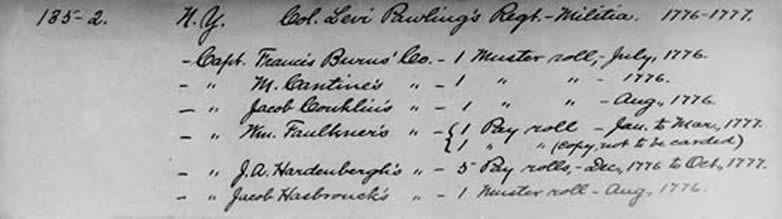 185-2. N.Y. Col. Levi Pawling's Regt.-Militia. 1776-1777.
- Capt. Francis Burns' Co. - 1 Muster roll, - July, 1776.
- " M. Cantine's " - 1 " " - 1776.
- " Jacob Conklin's " - 1 " " - Aug., 1776.
- " Wm. Faulkner's " - { 1 Pay roll - Jan. to Mar., 1777.
1 " " (copy, not to be carded)
- " J.A. Hardenbergh's " - 5 Pay rolls, - Dec., 1776 to Oct., 1777.
- " Jacob Hasbrouck's " - 1 Muster roll - Aug., 1776.